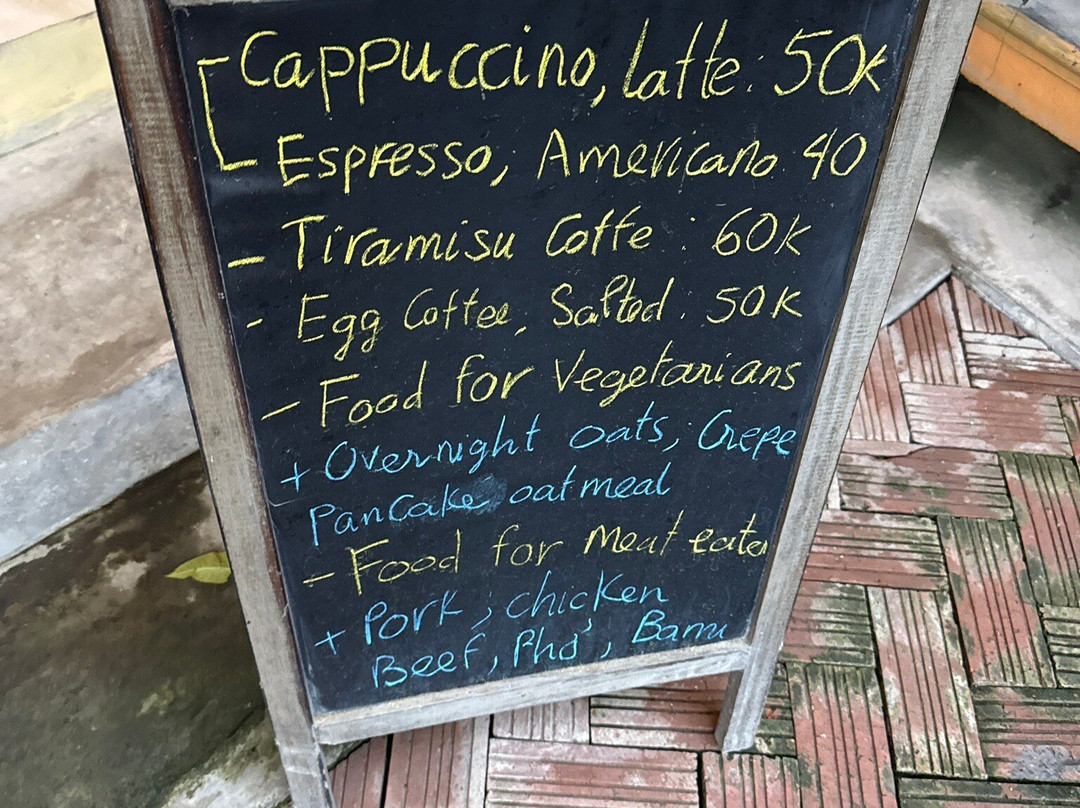 Cappuccino, latte: 50k
- Espresso, Americano 40
- Tiramisu Coffe : 60k
- Egg Coffee, Salted. 50K
- Food for Vegetarians
+ Overnight oats, Crepe
Pancake oatmeal
- Food for meat eater
+ Pork, chicken
Beef, Phở, Bami